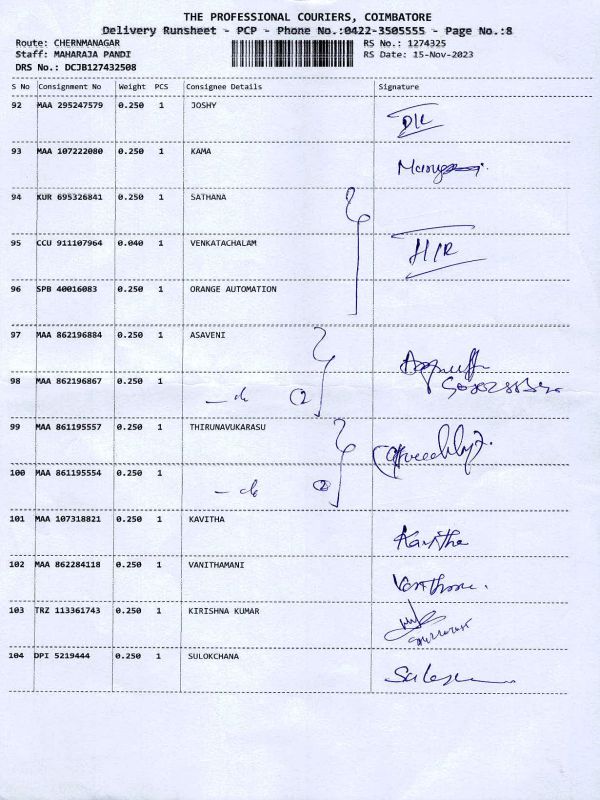 THE PROFESSIONAL COURIERS, COIMBATORE
Delivery Runsheet - PCP - Phone No.:0422-3505555 - Page No.:8
Route: CHERNMANAGAR RS No.: 1274325
Staff: MAHARAJA PANDI RS Date: 15-Nov-2023
DRS No.: DCJB127432508
S No Consignment No Weight PCS Consignee Details Signature
92 MAA 295247579 0.250 1 JOSHY
93 MAA 107222080 0.250 1 KAMA
94 KUR 695326841 0.250 1 SATHANA
95 CCU 911107964 0.040 1 VENKATACHALAM H/R
96 SPB 40016083 0.250 1 ORANGE AUTOMATION
97 MAA 862196884 0.250 1 ASAVENI
98 MAA 862196867 0.250 1 - do (2)
99 MAA 861195557 0.250 1 THIRUNAVUKARASU
100 MAA 861195554 0.250 1 - do (2)
101 MAA 107318821 0.250 1 KAVITHA Kavitha
102 MAA 862284118 0.250 1 VANITHAMANI
103 TRZ 113361743 0.250 1 KIRISHNA KUMAR
104 DPI 5219444 0.250 1 SULOKCHANA